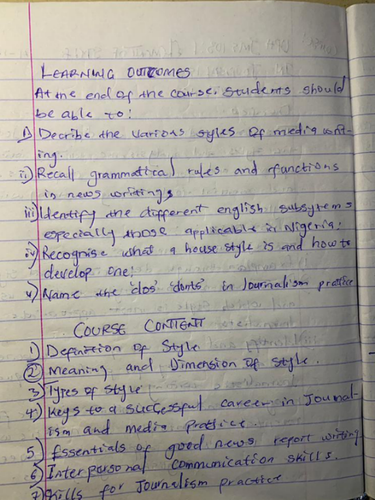 LEARNING OUTCOMES
At the end of the course, students should
be able to:
i) Decribe the various styles of media writ-
ing.
ii) Recall grammatical rules and functions
in news writings
iii) Identify the different english subsytems
especially those applicable in Nigeria:
iv) Recognise what a house style is and how to
develop one;
v) Name the 'dos' 'donts' in Journalism practice
COURSE CONTENT
1) Definition of Style
2) Meaning and Dimension of style.
3) Types of style
4) Keys to a successful career in Journal-
ism and media practice
5) Essentials of good news report writing
6) Interpersonal communication skills.
7) Skills for Journalism practice